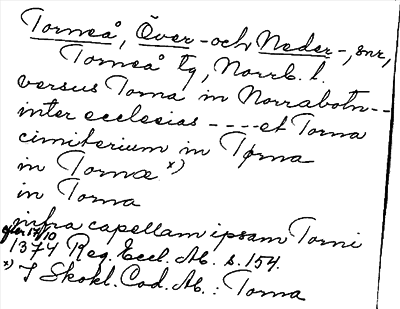 Torneå, Över- och Neder-, snr,
Torneå tg, Norrb. l.
versus Torna in Norrabotn--
inter ecclesias ----et Torna
cimiterium in Torna
in Tornæ x)
in Torna
infra capellam ipsam Torni
efter 17/10
1374 Reg. Eccl. Ab. s. 154.
x) I Skokl. Cod. Ab.: Torna